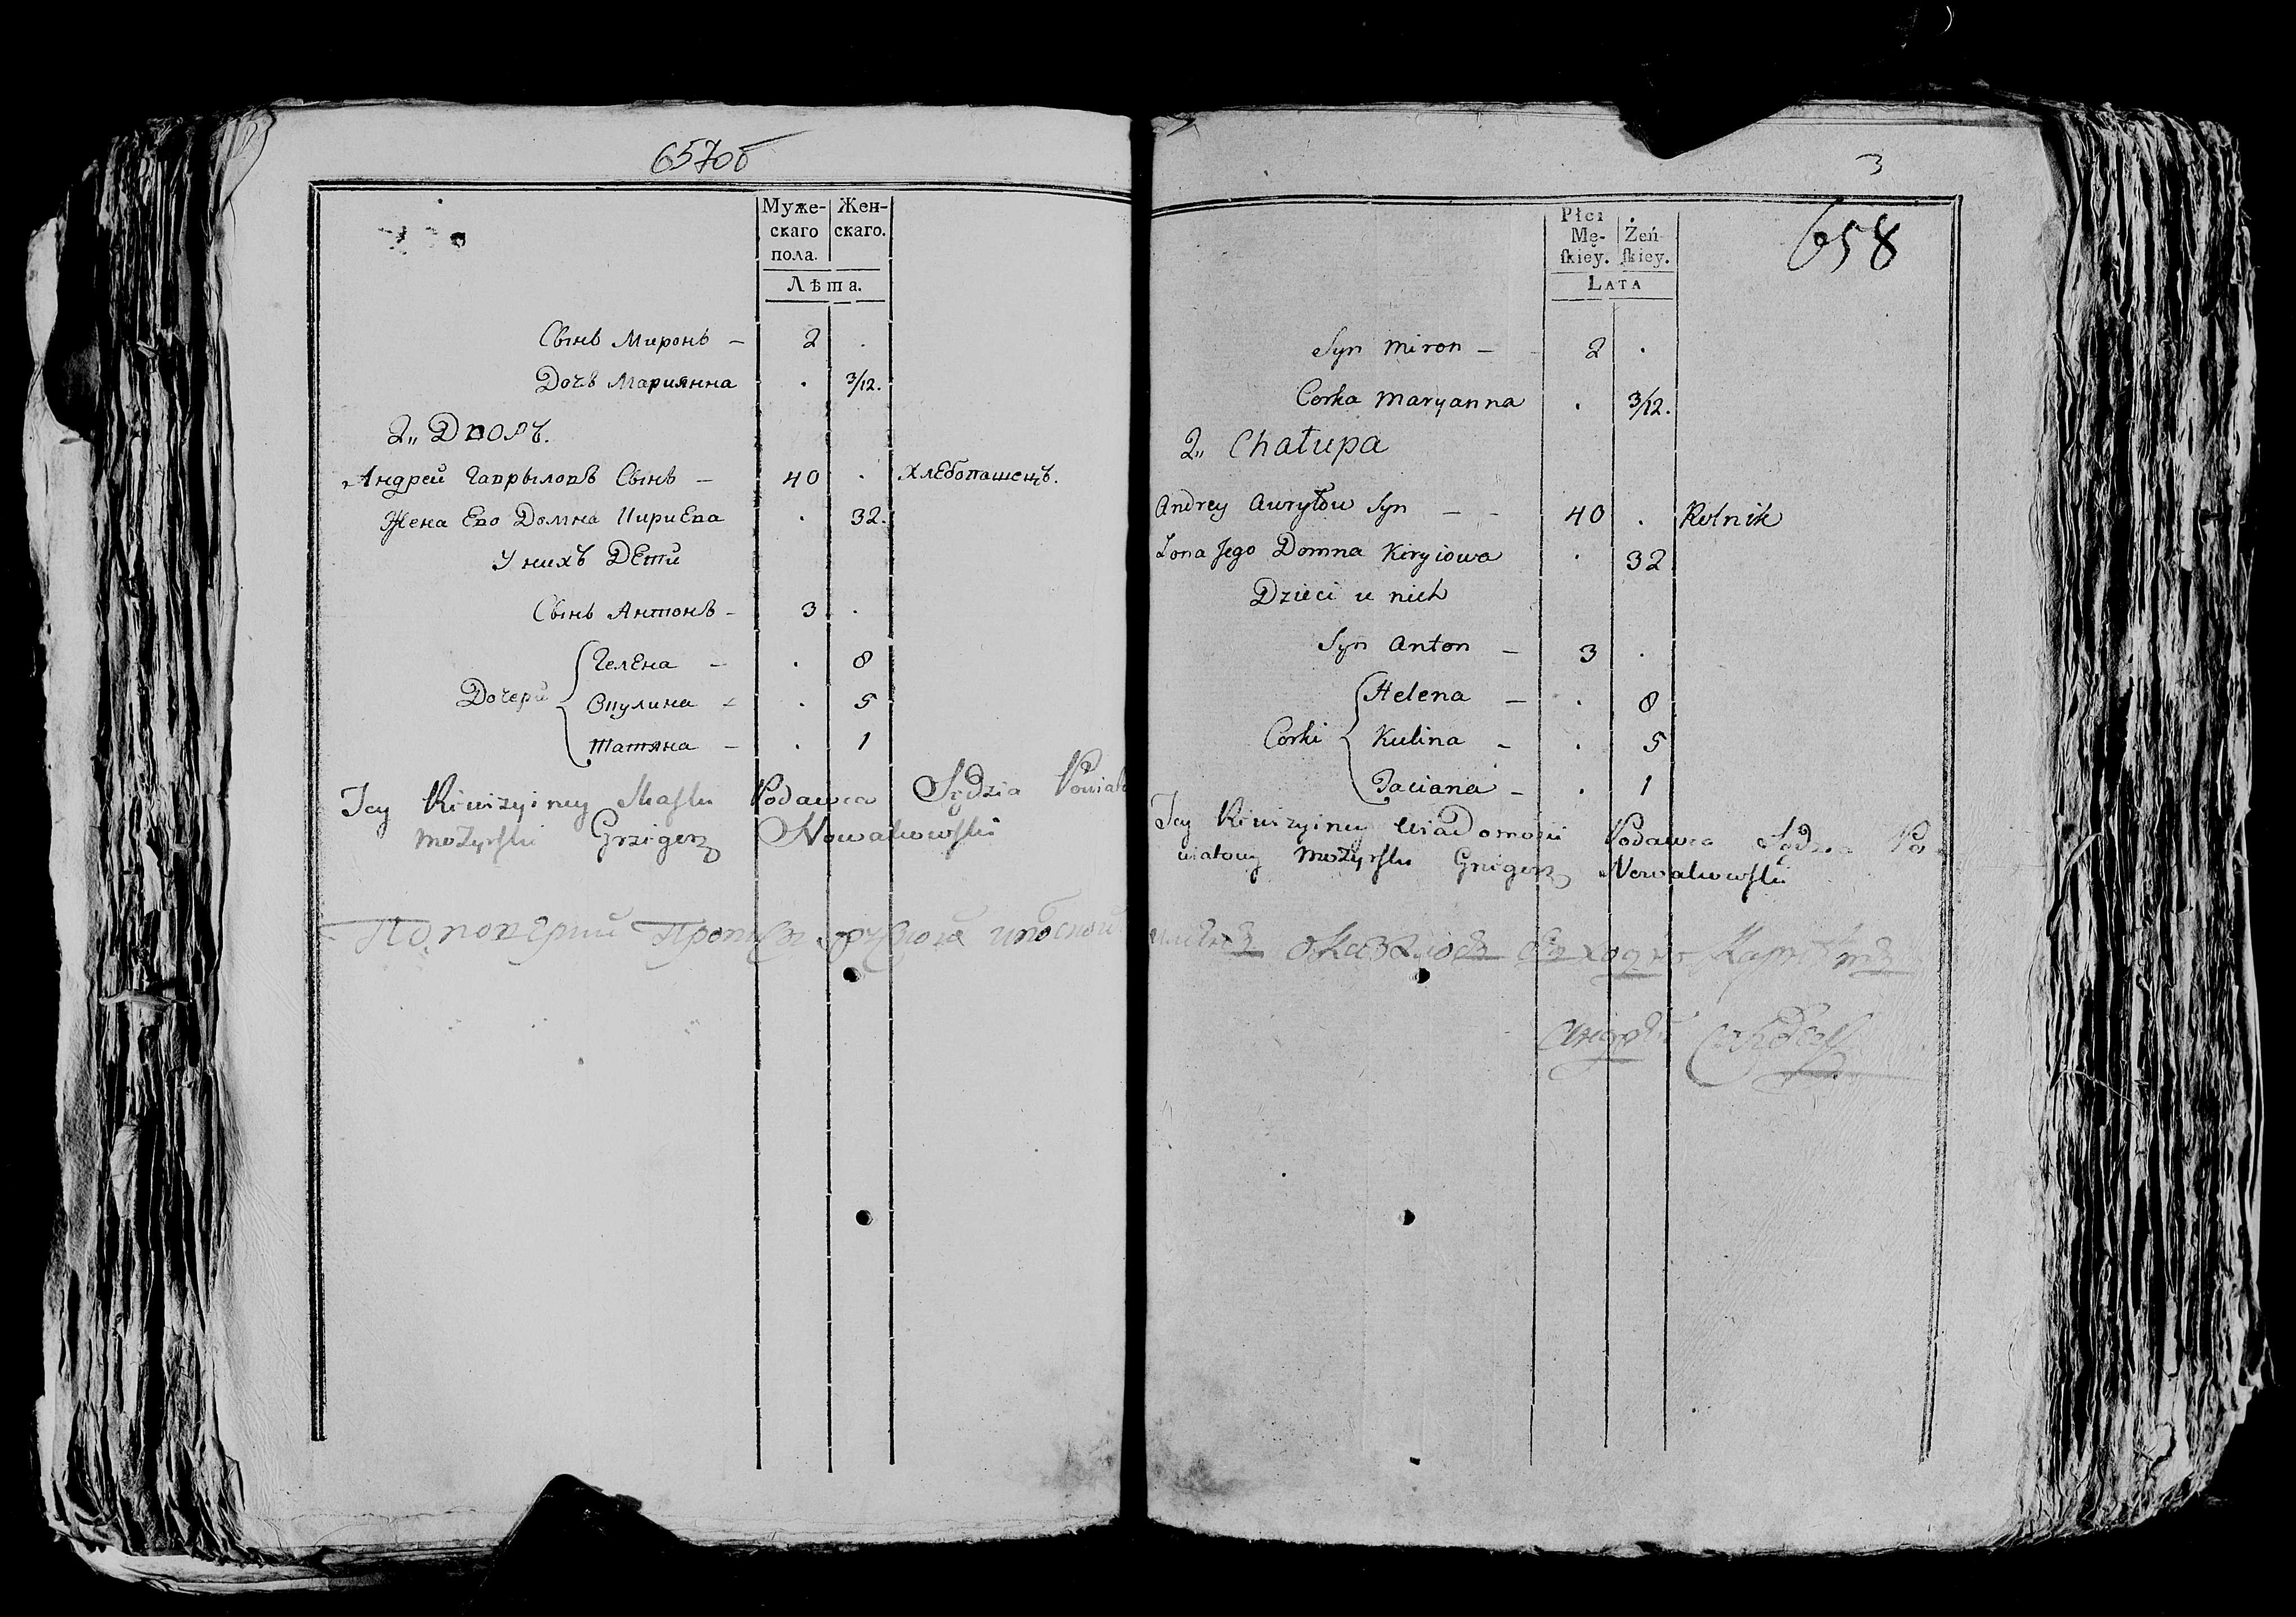 657об
Муже-
скаго
пола.
Жен-
скаго.
Лѣта.
Сынъ Миронъ – 2 .
Дочъ Мариянна . 3/12.
2„ Дворъ.
Андрей Гаврыловъ Сынъ – 40 . Хлебопашецъ.
Жена Ево Домна Кириева . 32.
У нихъ Дети
Сынъ Антонъ – 3 .
Дочери
Гелена – . 8
Кулина – . 5
Татяна – . 1
Jey Rewizyiney Skaski Podawca Sędzia Powiato
Mozyrski Grzegorz Nowakowski
3
658
Płci
Mę-
ſkiey.
Żeń-
ſkiey.
LATA
Syn Miron – 2 .
Corka Maryanna . 3/12.
2„ Chałupa
Andrey Awryłow Syn – – 40 . Rolnik
Zona Jego Domna Kiryiowa . 32
Dzieci u nich
Syn Anton – 3 .
Corki
Helena – . 8
Kulina – . 5
Taciana – . 1
Jey Rewizyiney Wiadomości Podawca Sędzia Po
wiatowy Mozyrski Grzegorz Nowakowski